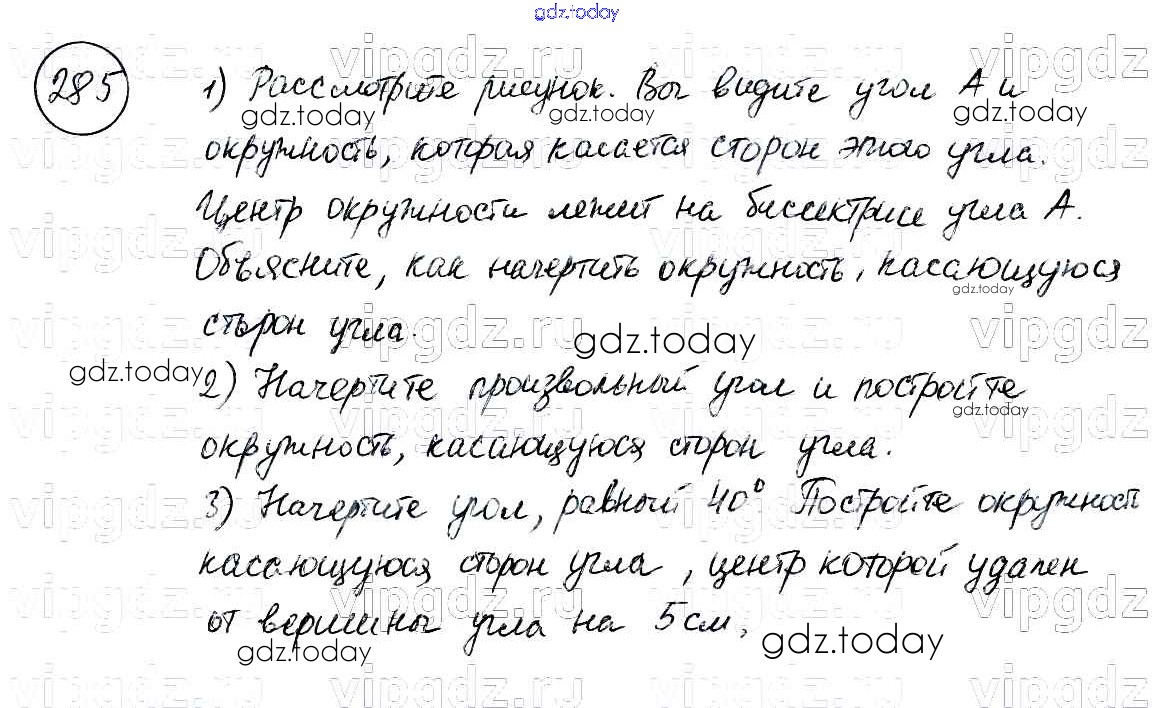 gdz.today
285
1) Рассмотрите рисунок. Вы видите угол А и
окружность, которая касается сторон этого угла.
Центр окружности лежит на биссектрисе угла А.
Объясните, как начертить окружность, касающуюся
сторон угла.
2) Начертите произвольный угол и постройте
окружность, касающуюся сторон угла.
3) Начертите угол, равный 40° Постройте окружность
касающуюся сторон угла, центр которой удален
от вершины угла на 5 см,
vipgdz.ru
gdz.today